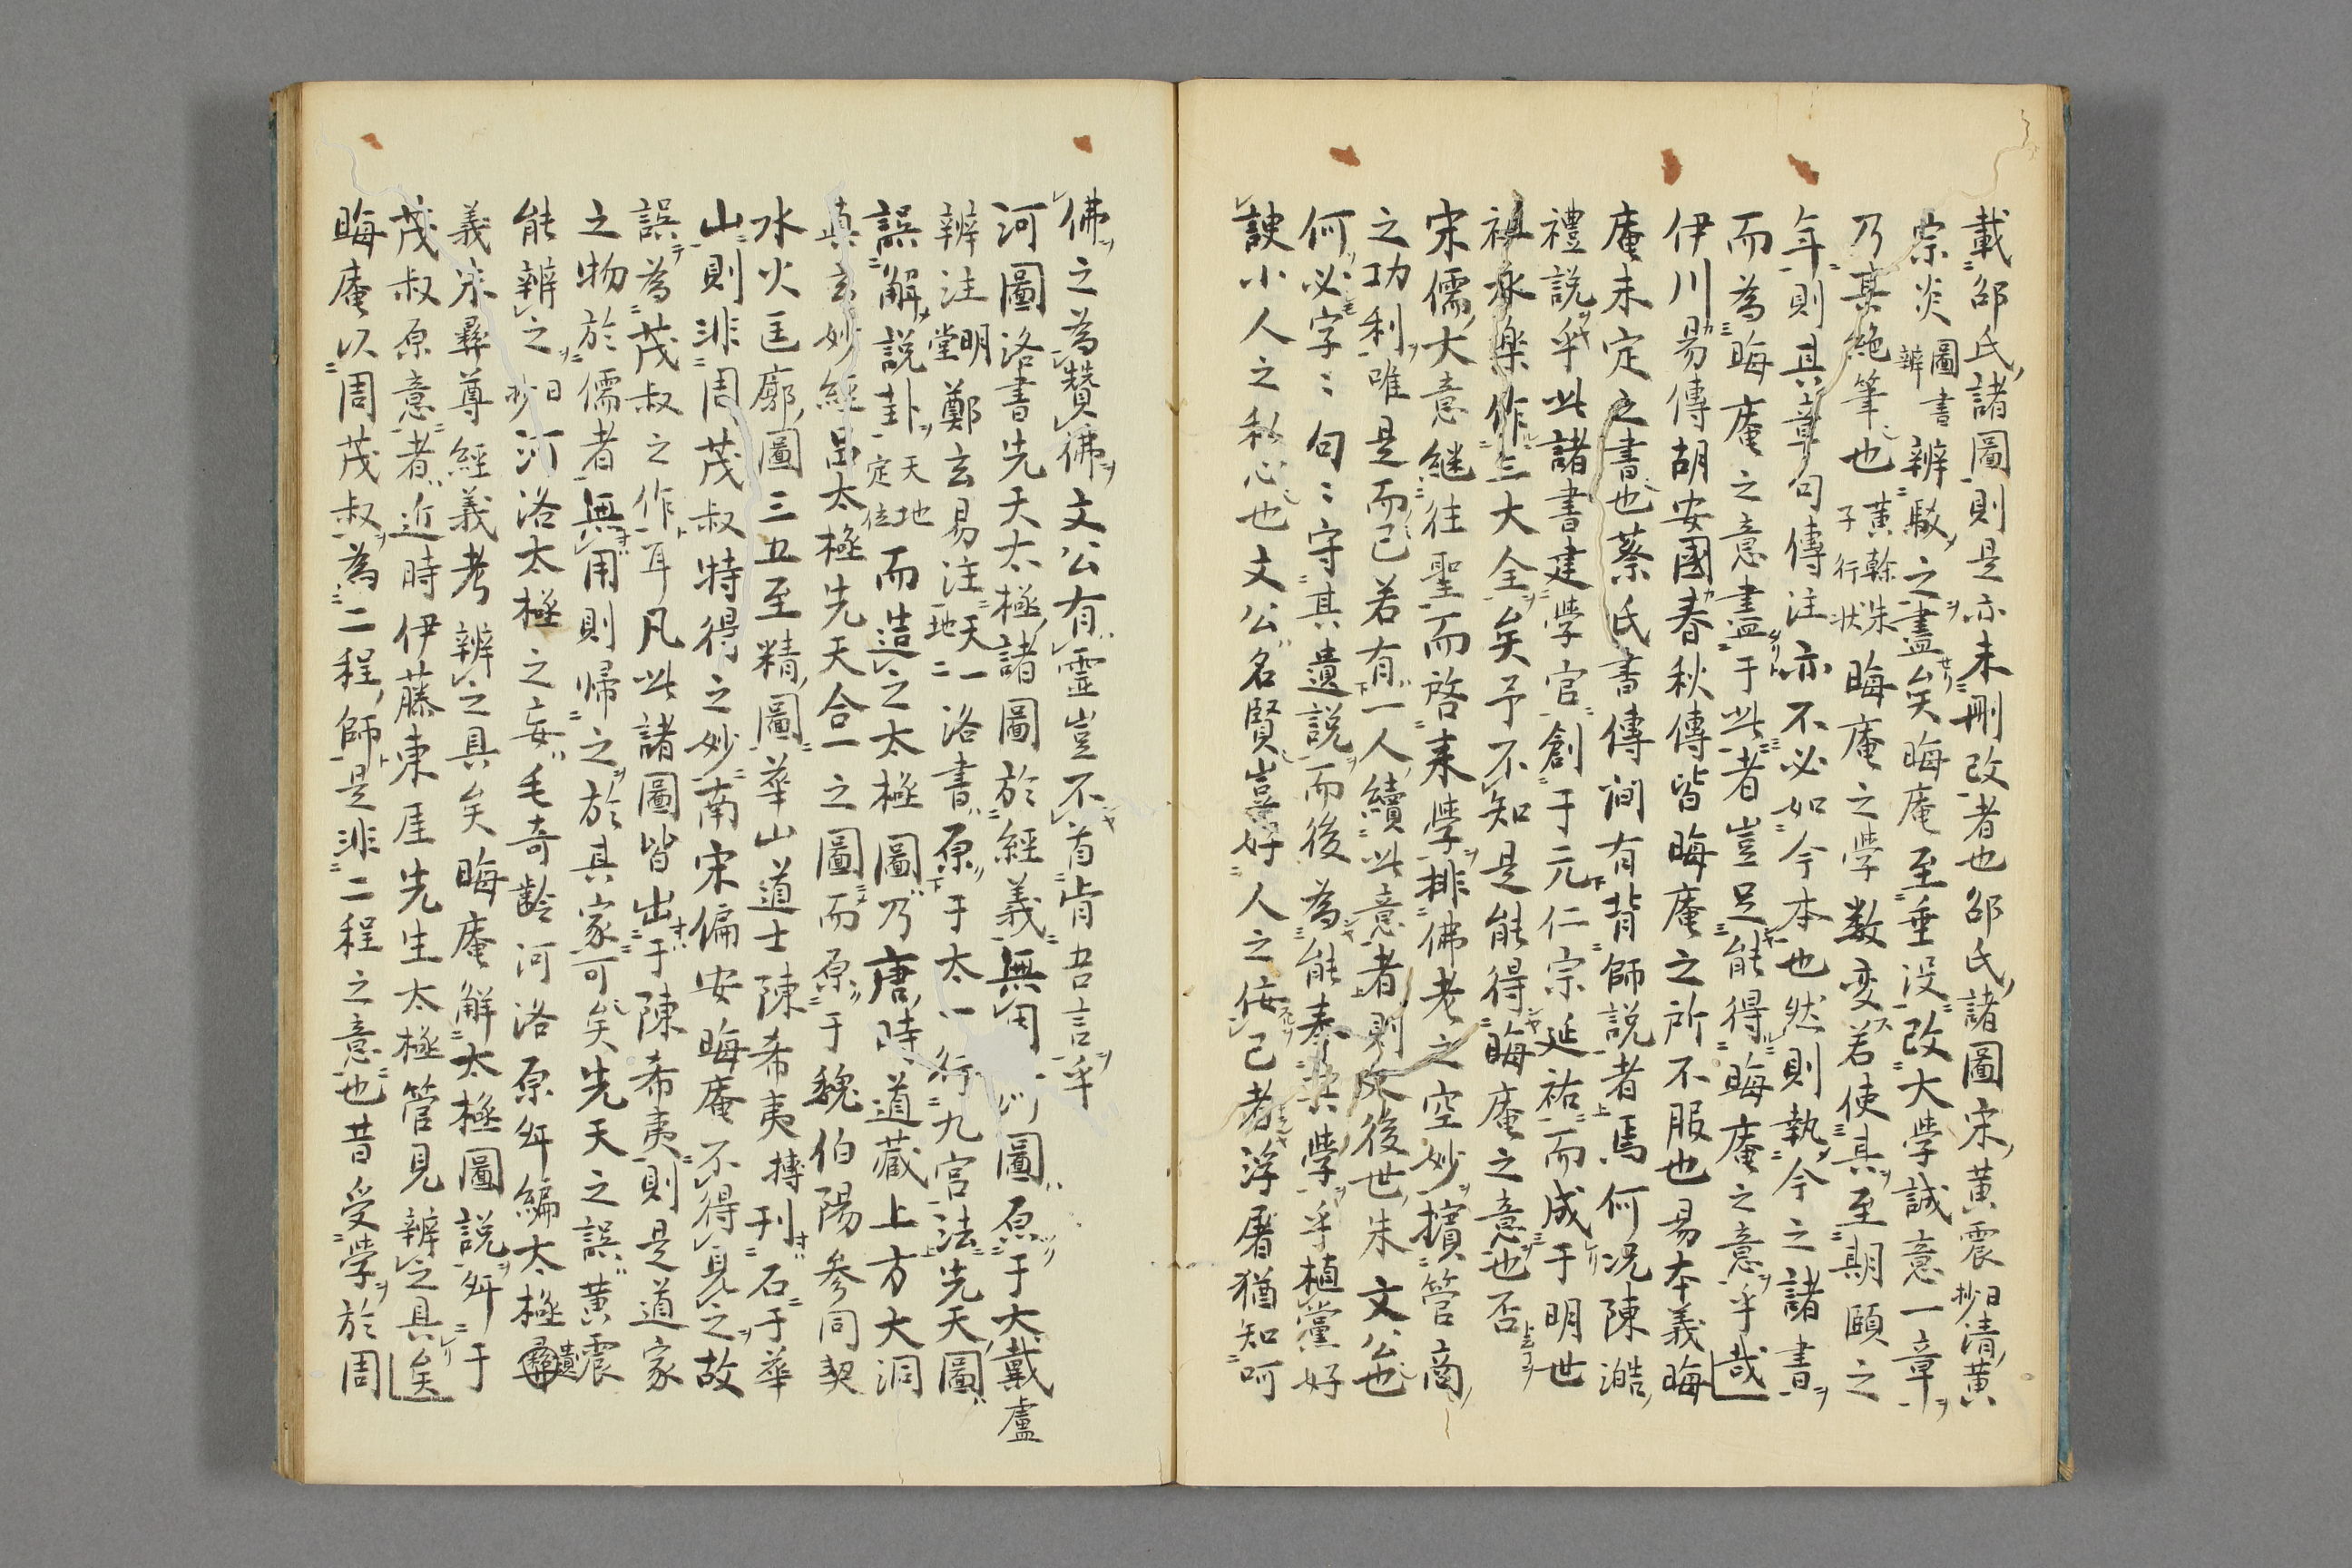 載邵氏諸圖則是亦未刪改者也邵氏諸圖宋黃震日抄清黃
宗炎圖書辨辨駁之盡矣晦庵至垂没改大學誠意一章
乃其絶筆也黃榦朱子行狀晦庵之學数变若使其至期頤之
年則其章句傳注亦不必如今本也然則執今之諸書
而為晦庵之意盡于此者豈足能得晦庵之意乎哉
伊川易傳胡安國春秋傳皆晦庵之所不服也易本義晦
庵未定之書也蔡氏書傳间有背師説者焉何况陳澔
禮説乎此諸書建学官創于元仁宗延祐而成于明世
祖永楽作三大全矣予不知是能得晦庵之意也否
宋儒大意継往聖而啓来學排佛老之空妙擯管商
之功利唯是而已若有一人續此意者則後世朱文公也
何必字〻句〻守其遺説而後為能奉其學乎植黨好
諛小人之私心也文公名賢豈好人之佞己者浮屠猶知呵
佛之為贊佛文公有靈豈不首肯吾言乎
河圖洛書先天太極諸圖於經義無用圖原于大戴盧
辨注明堂鄭玄易注天一地二洛書原于太一行九宮法先天圖
誤解説卦天地定位而造之太極圖乃唐時道藏上方大洞
真玄妙經品太極先天合一之圖而原于魏伯陽參同契
水火匡廓圖三五至精圖華山道士陳希夷摶刊石于華
山則非周茂叔特得之妙南宋偏安晦庵不得見之故
誤為茂叔之作耳凡此諸圖皆出于陳希夷則是道家
之物於儒者無用則帰之於其家可矣先天之誤黃震
能辨之日抄河洛太極之妄毛奇齡河洛原舛編太極遺
義朱彝尊經義考辨之具矣晦庵解太極圖説舛于
茂叔原意者近時伊藤東厓先生太極管見辨之具矣
晦庵以周茂叔為二程師是非二程之意也昔受學於周